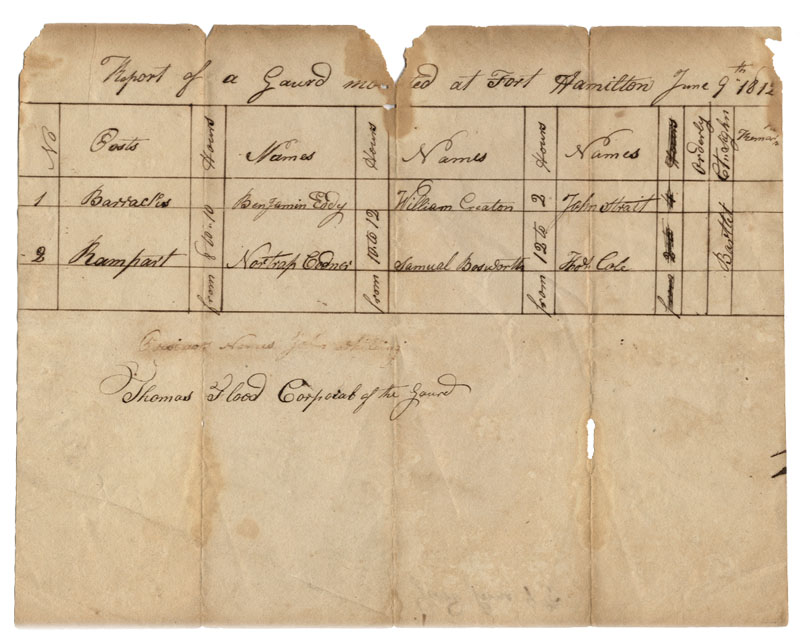 Report of a Gaurd mounted at Fort Hamilton June 9th 1812
No Posts Hours Names Hours Names Hours Names Hours Orderly
1 Barracks from 8 to 10 Benjamin Eddy from 10 to 12 William Creaton from 12 to 2 John Strait Bartlet
2 Rampart Northrap Codner Samuel Bosworth Cole
Names John
Thomas Flood Corporal of the Gaurd